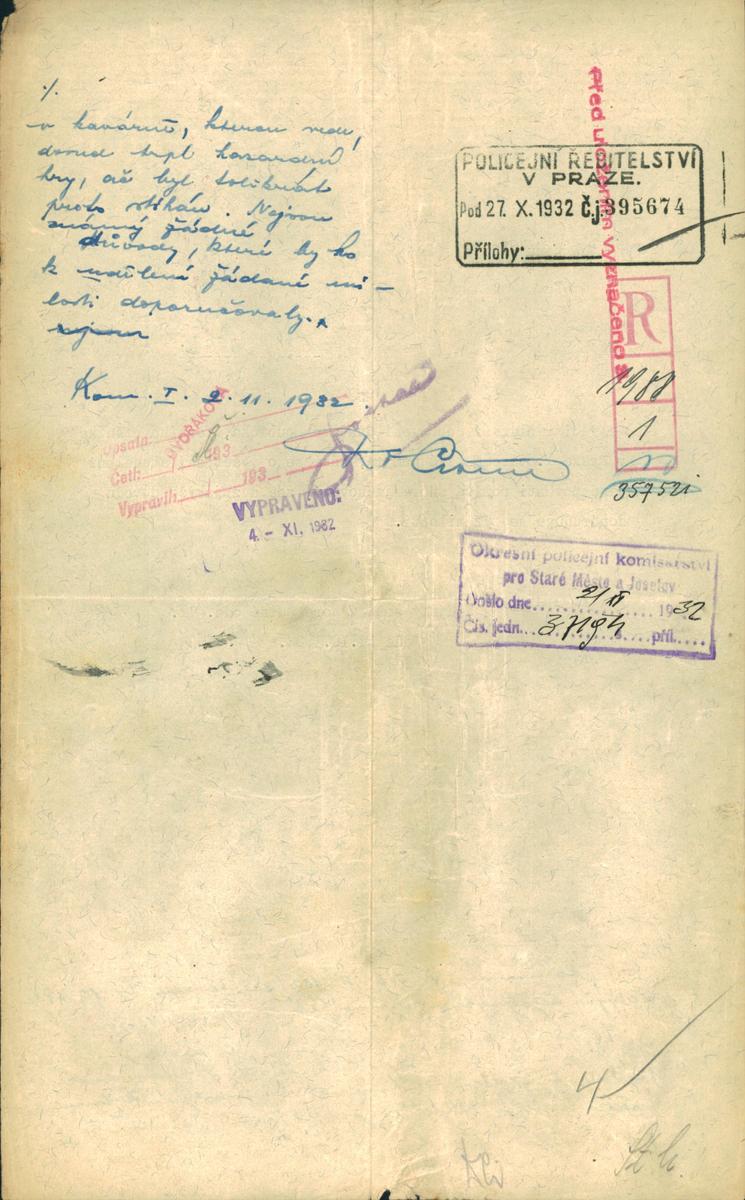 ./.
v kavárně, kterou vede,
dosud trpí hazardní
hry, ač byl tolikrát
proto stíhán. Nejsou
známy žádné
důvody, které by ho
k udělení žádané mi-
losti doporučovaly.
nejsou
Kom. I. 2. 11. 1932.
Před uložením vyznačeno
POLICEJNÍ ŘEDITELSTVÍ
V PRAZE.
Pod 27. X. 1932 Č.j. 395674
Přílohy:
R
1988
1
35752
Opsala:
DVOŘÁKOVÁ
Četl: 193
Vypravil: 193
VYPRAVENO:
4. - XI. 1932
Okresní policejní komisařství
pro Staré Město a Josefov
Došlo dne 2/XI 1932
Čís. jedn. 37194 příl.
4